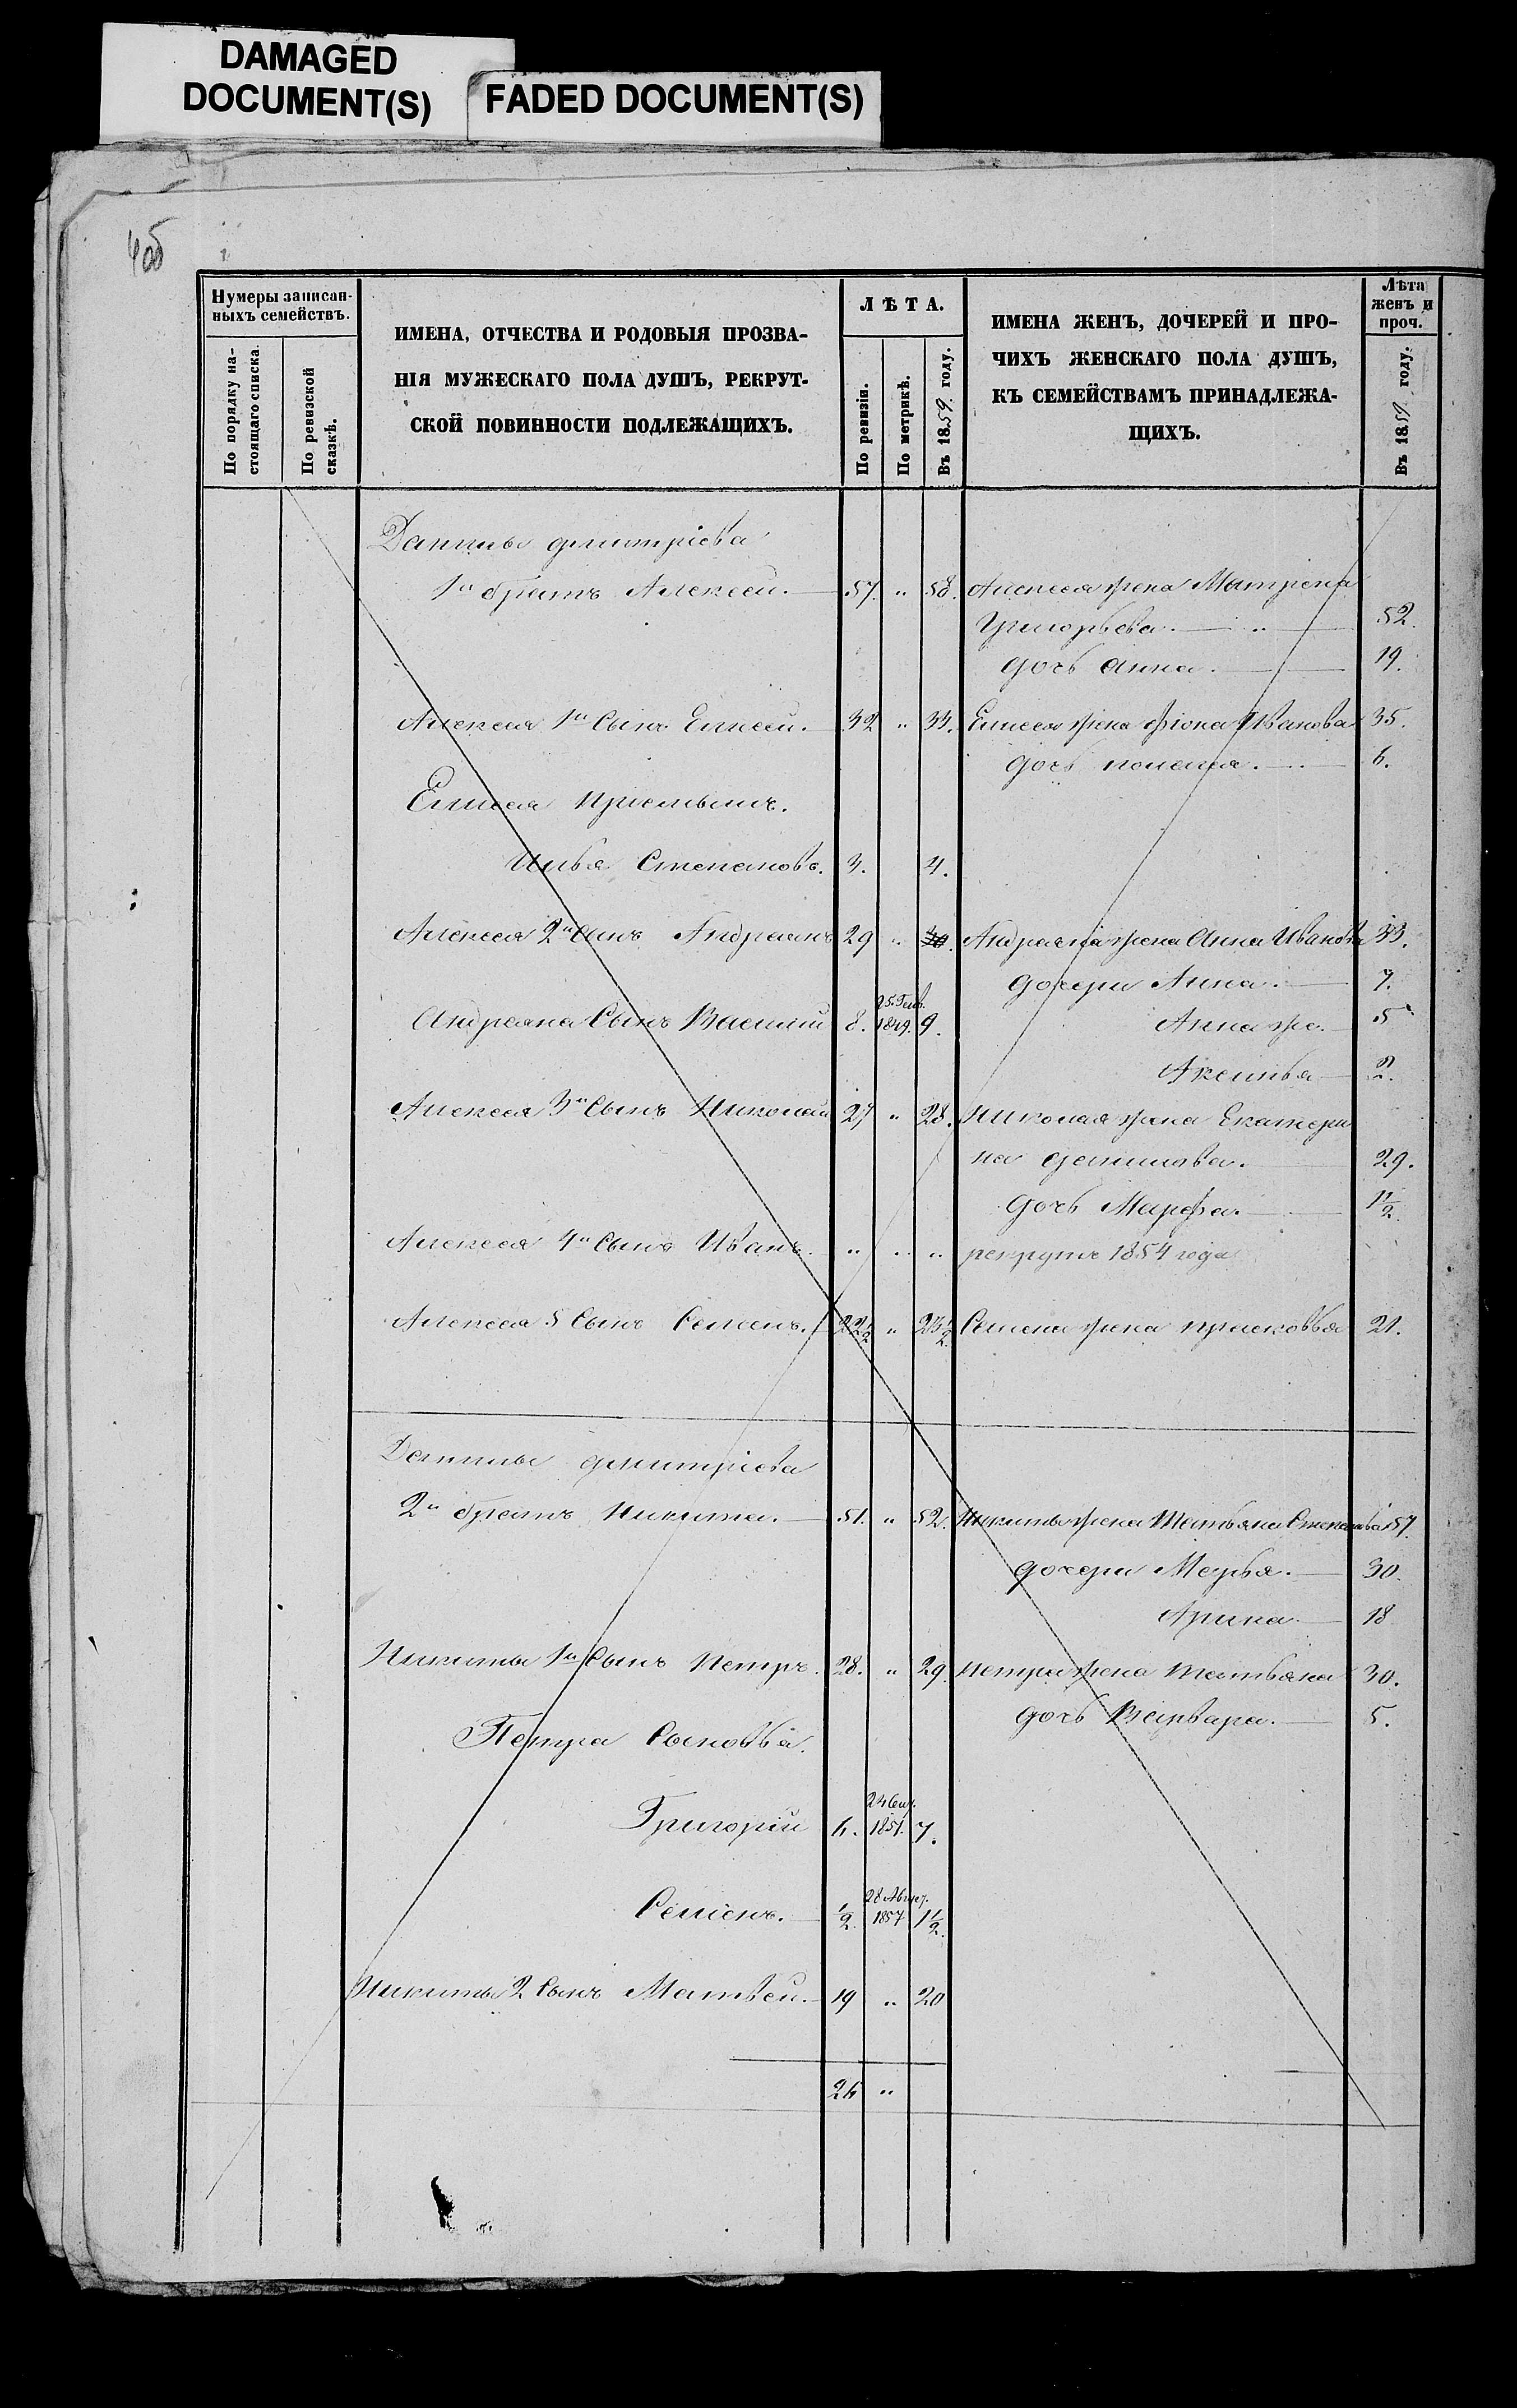 DAMAGED
DOCUMENT(S)
FADED DOCUMENT(S)
4об
Нумеры записан-
ныхъ семействъ.
По порядку на-
стоящаго списка.
По ревизской
сказкѣ.
ИМЕНА, ОТЧЕСТВА И РОДОВЫЯ ПРОЗВА-
НІЯ МУЖЕСКАГО ПОЛА ДУШЪ, РЕКРУТ-
СКОЙ ПОВИННОСТИ ПОДЛЕЖАЩИХЪ.
ЛѢТА.
По ревизіи.
По метрикѣ.
Въ 1859. году.
ИМЕНА ЖЕНЪ, ДОЧЕРЕЙ И ПРО-
ЧИХЪ ЖЕНСКАГО ПОЛА ДУШЪ,
КЪ СЕМЕЙСТВАМЪ ПРИНАДЛЕЖА-
ЩИХЪ.
Лѣта
женъ и
проч.
Въ 1859. году.
Данилы дмитріева
1й братъ Алексей. 57. " 58. Алексея жена Матрена
Григорьева. " 52.
дочь анна. 19.
Алексея 1й Сынъ Елисей. 32 " 33. Елисея жена Ѳіона Иванова 35.
дочь 6.
Елисея приемышъ.
Илья Степановъ. 3. 4.
Алексея 2й Сынъ Андреянъ 29 " 30. Андреяна жена Анна Иванова 33.
дочери Анна. 7.
25. Генв.
Андреяна Сынъ Василий 8. 1849. 9. Анна же. 5
Аксинья 2.
Алексея 3й Сынъ Николай 27 " 28. Николая жена Екатери
на данилова. 29.
дочь Марфа. 1 1/2.
Алексея 4й Сынъ Иванъ. " " " рекрутъ 1854 года
Алексея 5 Сынъ Семенъ. 22 1/2 " 23 1/2. Семена жена прасковья 21.
Данилы дмитриева
2й братъ Никита. 51. " 52. Никиты жена Татьяна Степанова 57.
дочери Марья. 30.
Арина. 18
Никиты 1й Сынъ Петръ. 28. " 29. петра жена татьяна 30.
дочь Варвара. 5.
Петра Сыновья.
24 Сен.
Григорій 6. 1851. 7.
28 Авгус.
Семенъ. 1/2. 1857 1 1/2.
Никиты 2 Сынъ Матвей. 19 " 20
26 "